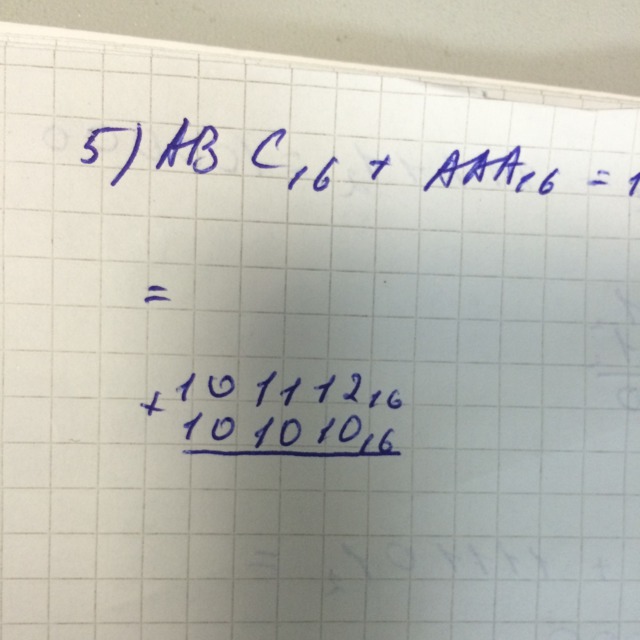 5) ABC₁₆ + AAA₁₆ = 1
=
+ 101112₁₆
101010₁₆